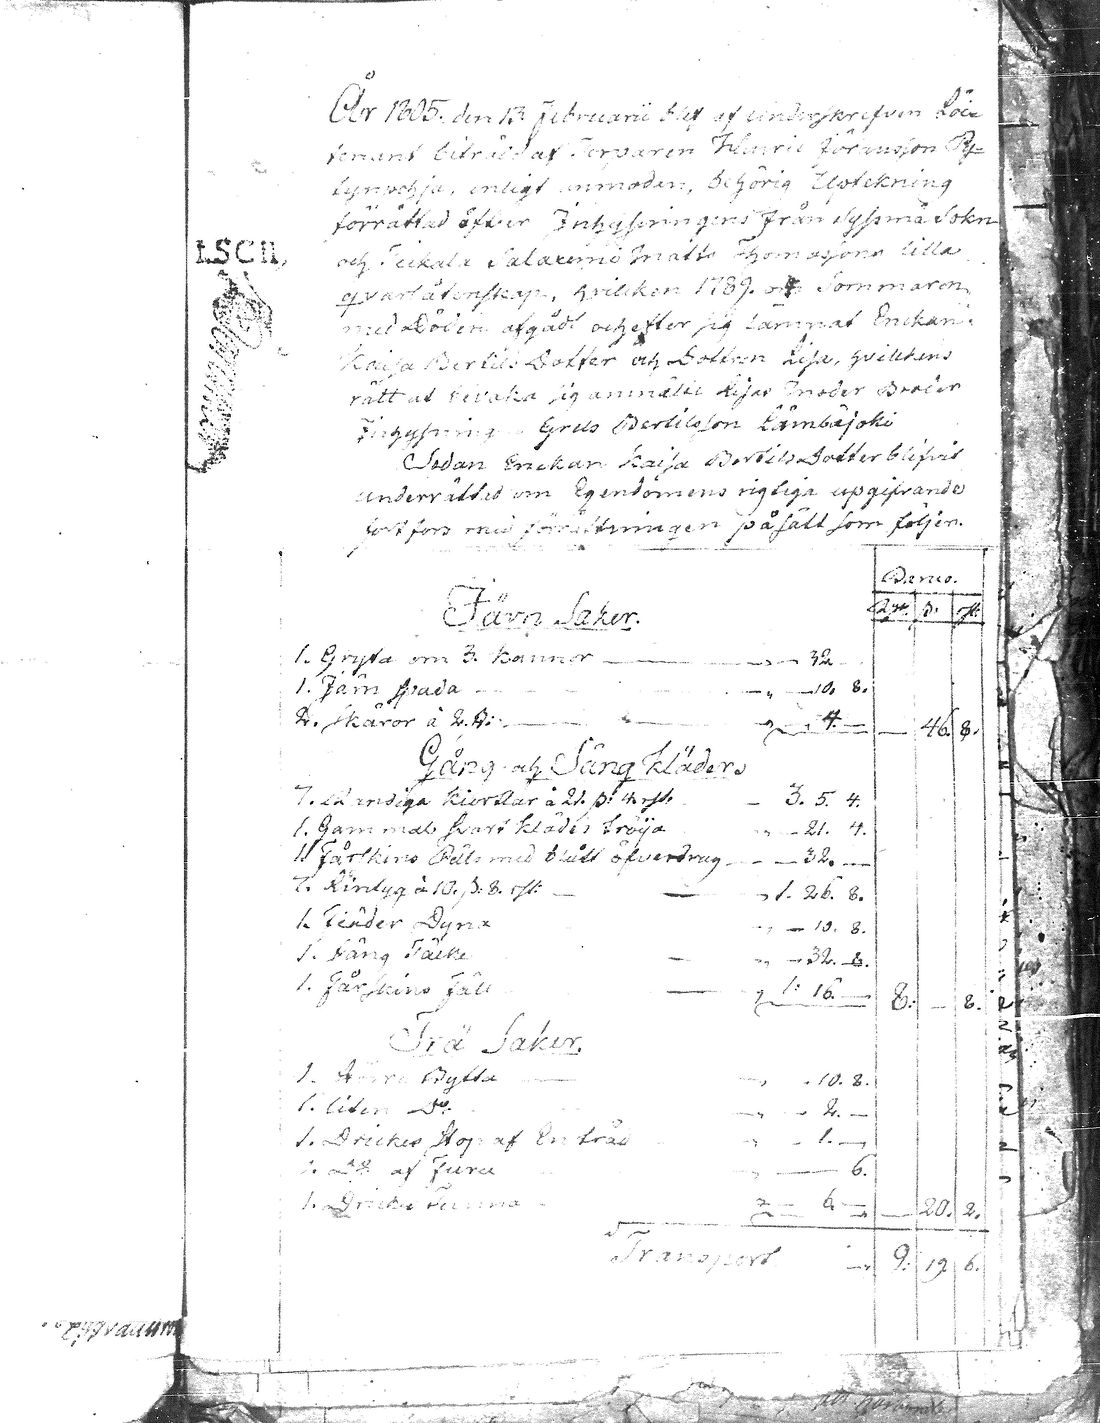 År 1805. den 13 Februarii blef af underskrefven Löi=
tenant biträdd af Torparen Henric Göransson
enligt anmodan, behörig Uptekning
förrättad öfver Inhysingens från Syssmä Sokn
och Teikala Salaxend Matts Thomassons lilla
qvarlåtenskap, hvilcken 1789. om Sommaren
med Döden afgådt och efter sig lämnat Enckan
Kaisa Bertils Dotter och Dottren Lisa, hvilckens
rätt at bevaka sig anmälte Lisas Moder Broder
Inhysning Grels Bertilsson Lämbäjoki
Sedan Enckan Kaisa Bertils Dotter blifvit
underrättad om Egendomens rigtiga upgifvande
fortfors med förrättningen på sätt som följer.
LSCH,
Banco.
Rdr. ß: rst.
Järn Saker.
1. Gryta om 3. kannor — " — 32 —
1. Järn spada — " — 10. 8.
2. Skäror à 2. ß: — " — 4. — — 46. 8.
Gång och Säng Kläder.
7. Randiga Kiortlar à 21. ß: 4. rst. — 3. 5. 4.
1. Gammal svart klädes tröija " — 21. 4.
1. Fårskins Päls med blått öfverdrag — — 32. —
7. Lintyg à 10. ß: 8. rst: — — " 1. 26. 8.
1. Fiäder Dyna " — 10. 8.
1. Säng Täcke — " — 32. 8.
1. Fårskins Fäll — " 1: 16. — 8: — 8.
Trä Saker.
1. Bytta — " 10. 8.
1. liten Do. " — 2. —
1. Drickes Stop af En träd " — 1. —
1. Do. af Furu " — 6.
1. Dricks Tunna " 6. — — 20. 2.
Transport — 9: 19 6.